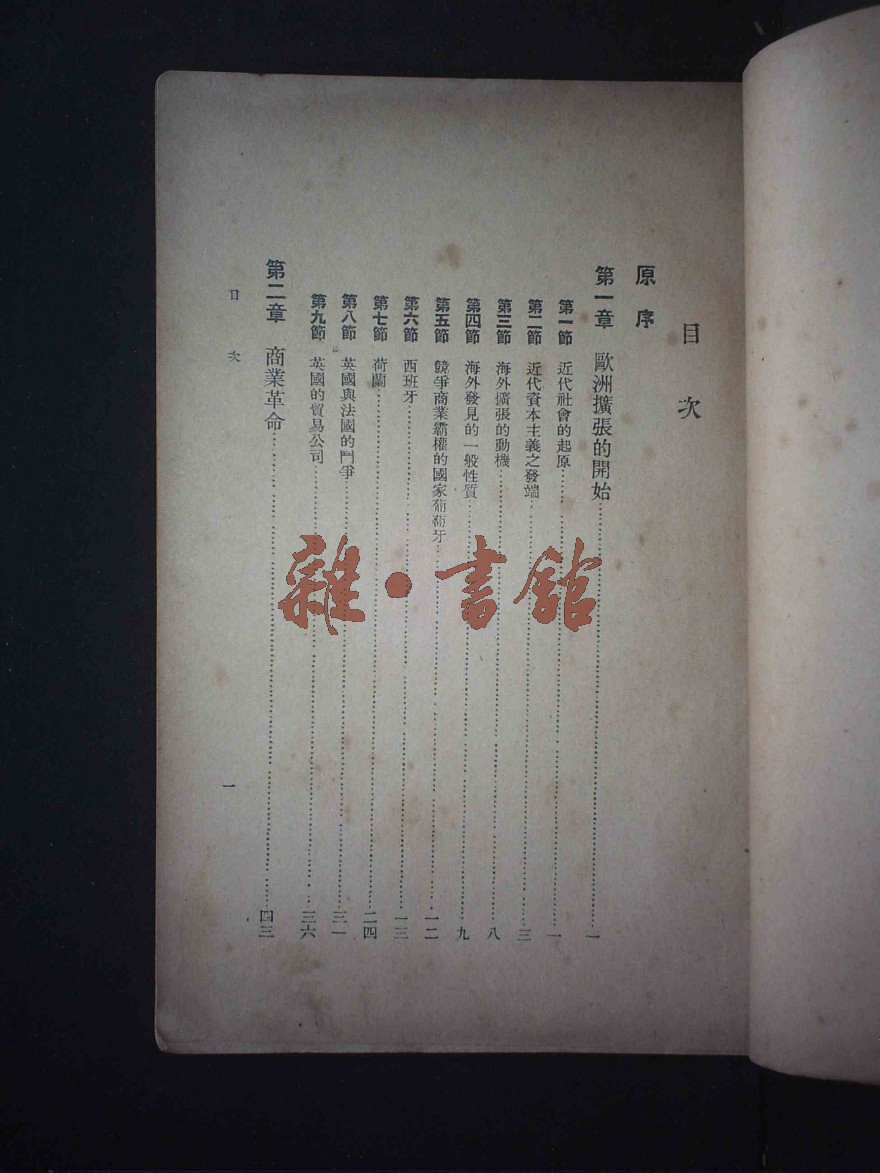 目次
原序
第一章 歐洲擴張的開始……一
第一節 近代社會的起原……一
第二節 近代資本主義之發端……三
第三節 海外擴張的動機……八
第四節 海外發見的一般性質……九
第五節 競爭商業霸權的國家葡萄牙……一二
第六節 西班牙……一三
第七節 荷蘭……二四
第八節 英國與法國的鬥爭……三一
第九節 英國的貿易公司……三六
第二章 商業革命……四三
目次
一
雜·書館